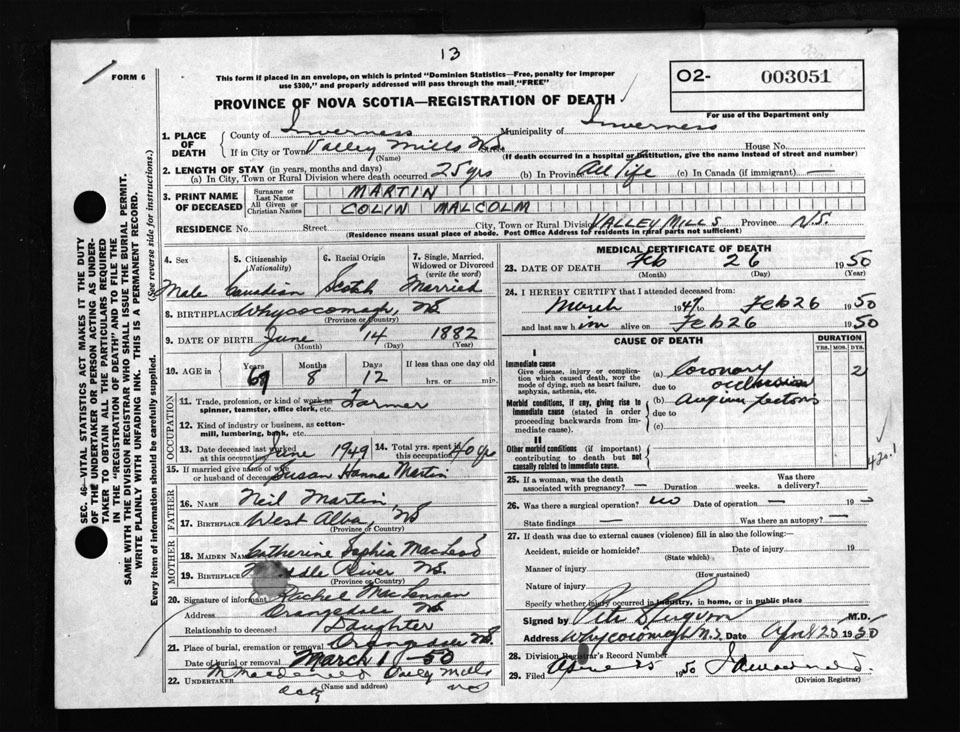 13
FORM 6
This form if placed in an envelope, on which is printed "Dominion Statistics—Free, penalty for improper
use $300," and properly addressed will pass through the mail "FREE"
O2- 003051
For use of the Department only
PROVINCE OF NOVA SCOTIA—REGISTRATION OF DEATH
1. PLACE OF DEATH
County of Inverness Municipality of Inverness
If in City or Town Valley Mills N.S. Street House No.
(Name) (If death occurred in a hospital or institution, give the name instead of street and number)
2. LENGTH OF STAY (in years, months and days)
(a) In City, Town or Rural Division where death occurred 25 yrs (b) In Province All life (c) In Canada (if immigrant) —
3. PRINT NAME OF DECEASED
Surname or Last Name MARTIN
All Given or Christian Names COLIN MALCOLM
RESIDENCE No. Street City, Town or Rural Division VALLEY MILLS Province N.S.
(Residence means usual place of abode. Post Office Address for residents in rural parts not sufficient)
4. Sex 5. Citizenship (Nationality) 6. Racial Origin 7. Single, Married, Widowed or Divorced (write the word)
Male Canadian Scotch Married
8. BIRTHPLACE Whycocomagh, NS
(Province or Country)
9. DATE OF BIRTH June 14 1882
(Month) (Day) (Year)
10. AGE in Years Months Days If less than one day old
67 8 12 hrs. or min.
OCCUPATION
11. Trade, profession, or kind of work as spinner, teamster, office clerk, etc. Farmer
12. Kind of industry or business, as cotton-mill, lumbering, bank, etc.
13. Date deceased last worked at this occupation June 1949 14. Total yrs. spent in this occupation 40 yrs
15. If married give name of wife or husband of deceased Susan Hanna Martin
FATHER
16. NAME Neil Martin
17. BIRTHPLACE West Alba, NS
(Province or Country)
MOTHER
18. MAIDEN NAME Catherine Sophia MacLeod
19. BIRTHPLACE Middle River NS.
(Province or Country)
20. Signature of informant Rachel MacLennan
Address Orangedale NS
Relationship to deceased Daughter
21. Place of burial, cremation or removal Orangedale NS.
Date of burial or removal March 1 - 50
22. UNDERTAKER Vally Mills
(Name and address) NS
MEDICAL CERTIFICATE OF DEATH
23. DATE OF DEATH Feb 26 1950
(Month) (Day) (Year)
24. I HEREBY CERTIFY that I attended deceased from
March 1947 to Feb 26 1950
and last saw him alive on Feb 26 1950
CAUSE OF DEATH DURATION
YRS. MOS. DYS.
I
Immediate cause
Give disease, injury or complication which caused death, not the mode of dying, such as heart failure, asphyxia, asthenia, etc.
(a) Coronary 2
due to occlusion
Morbid conditions, if any, giving rise to immediate cause (stated in order proceeding backwards from immediate cause).
(b) Angina Pectoris
due to
(c)
II
Other morbid conditions (if important) contributing to death but not causally related to immediate cause.
25. If a woman, was the death associated with pregnancy? — Duration weeks. Was there a delivery?
26. Was there a surgical operation? no Date of operation — 19 -
State findings — Was there an autopsy? —
27. If death was due to external causes (violence) fill in also the following:
Accident, suicide or homicide? Date of injury 19
(State which)
Manner of injury
(How sustained)
Nature of injury
Specify whether injury occurred in industry, in home, or in public place
Signed by M.D.
Address Whycocomagh N.S. Date April 25 1950
28. Division Registrar's Record Number
29. Filed April 25 1950
(Division Registrar)
SEC. 46—VITAL STATISTICS ACT MAKES IT THE DUTY
OF THE UNDERTAKER OR PERSON ACTING AS UNDER-
TAKER TO OBTAIN ALL THE PARTICULARS REQUIRED
IN THE "REGISTRATION OF DEATH" AND TO FILE THE
SAME WITH THE DIVISION REGISTRAR WHO SHALL ISSUE THE BURIAL PERMIT.
WRITE PLAINLY WITH UNFADING INK. THIS IS A PERMANENT RECORD.
Every item of information should be carefully supplied. (See reverse side for instructions.)